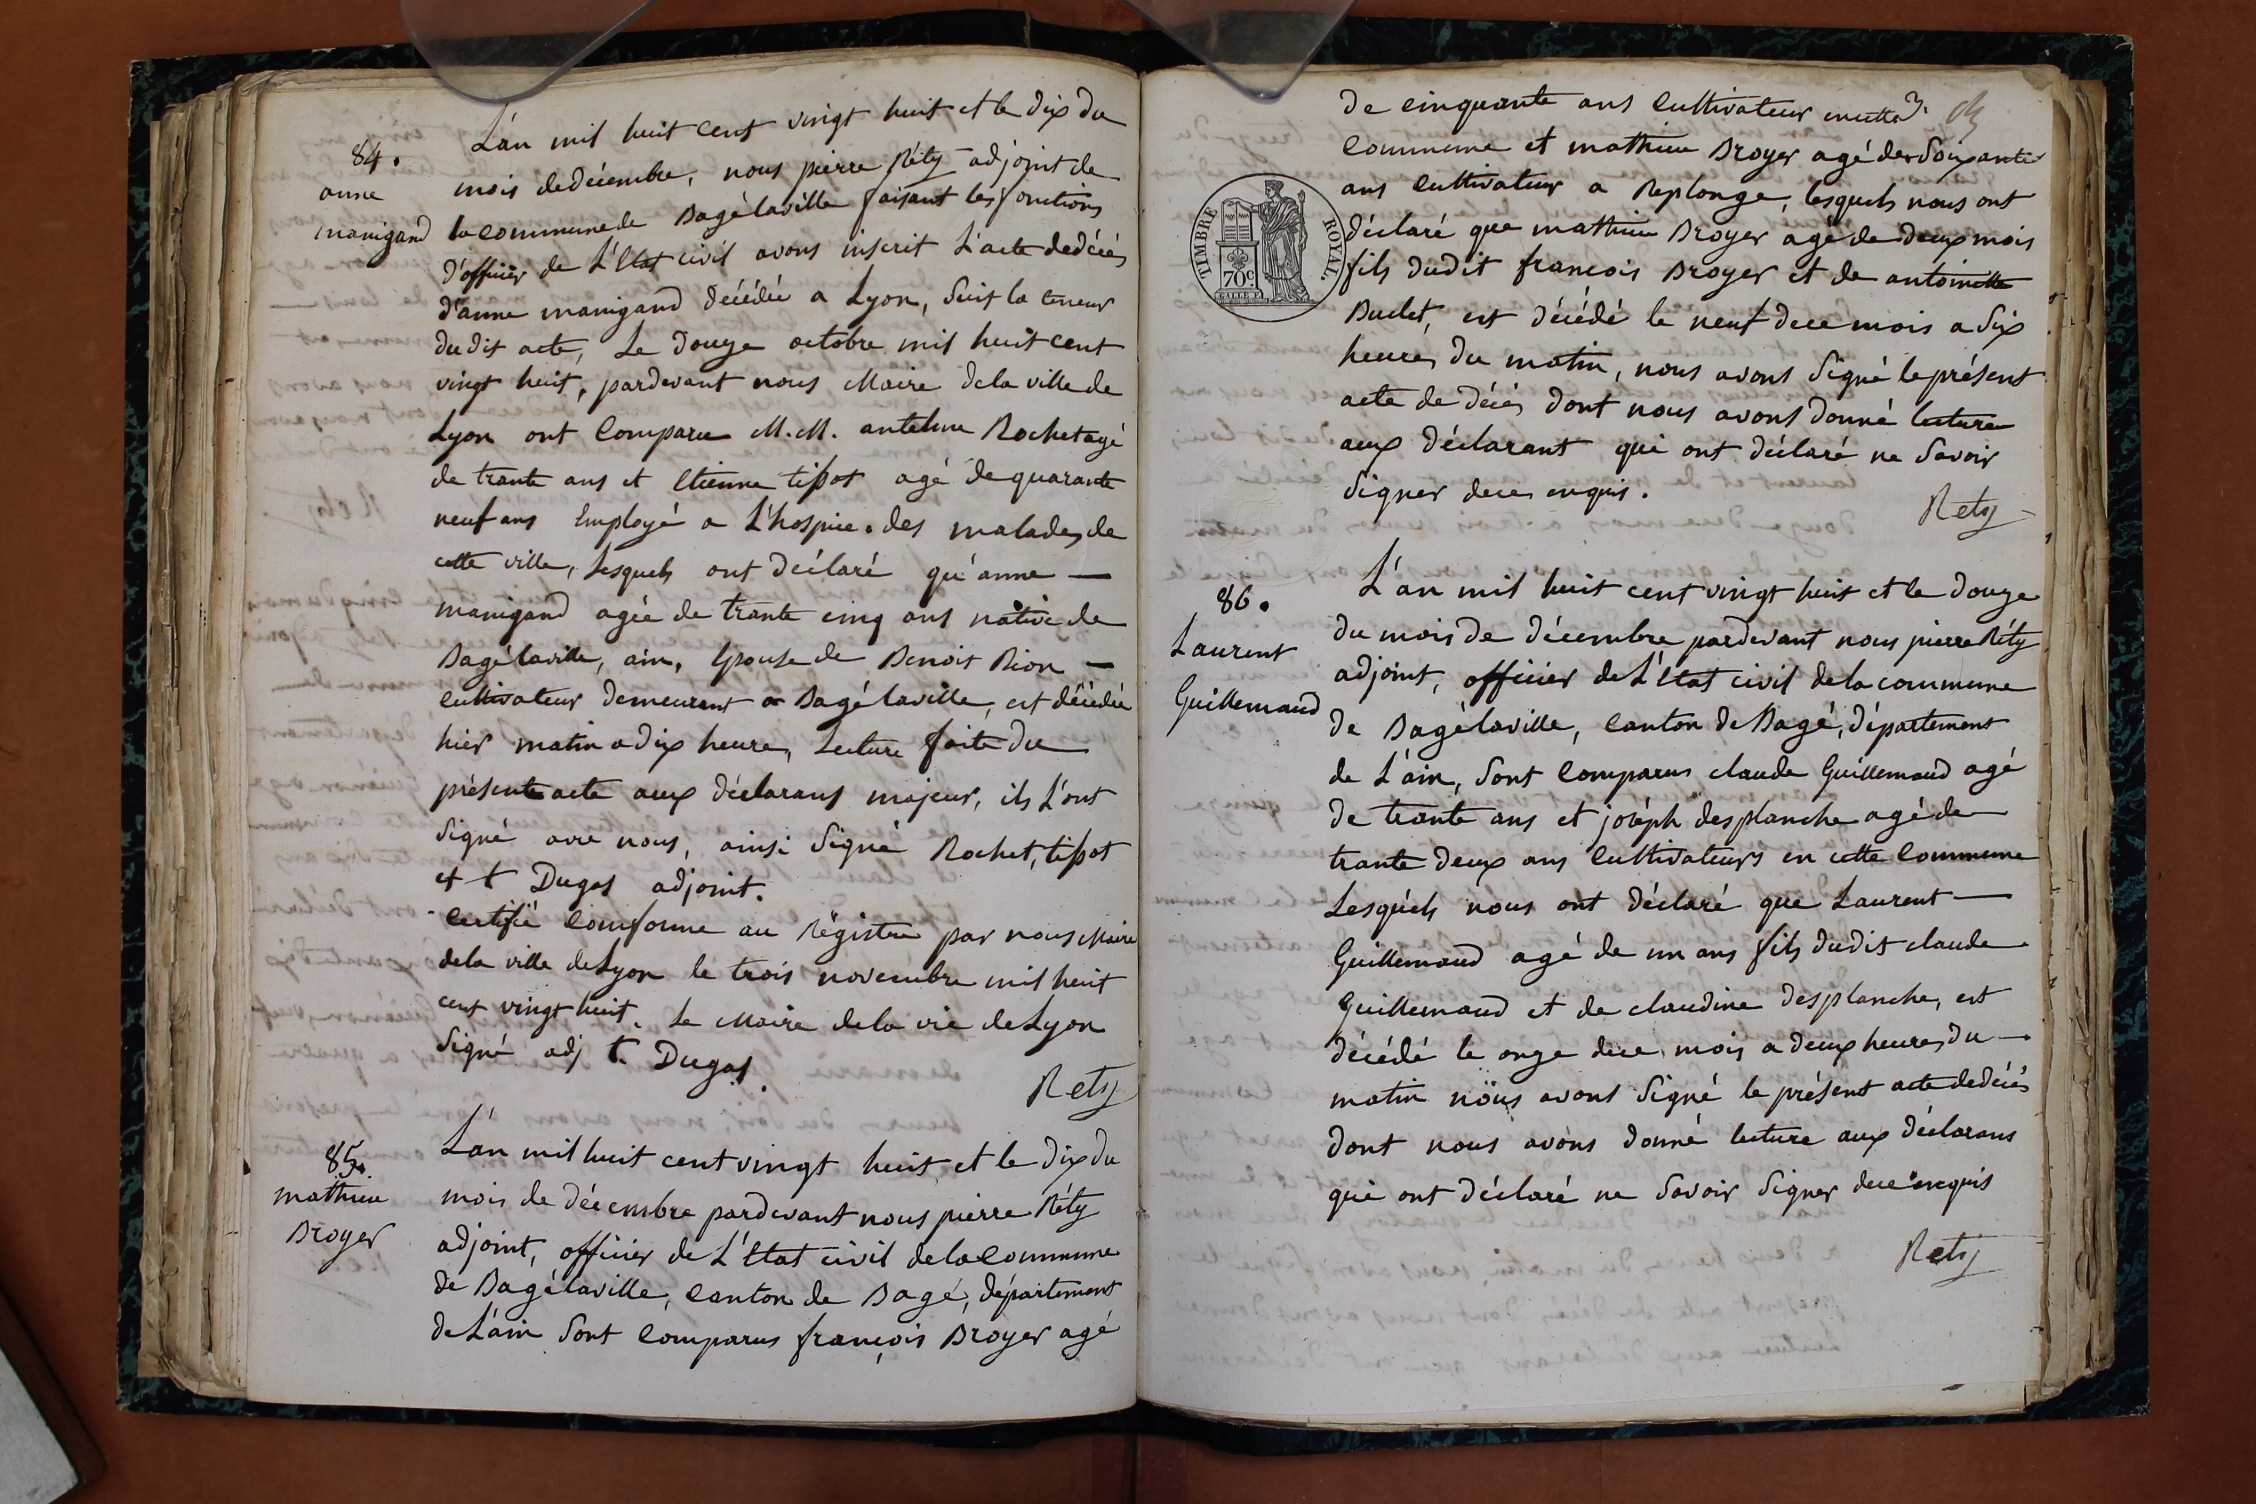 84.
anne
manigand
L'an mil huit cent vingt huit et le dix du
mois de décembre, nous pierre Réty adjoint de
la commune de Bagélaville faisant les fonctions
d'officier de L'Etat civil avons inscrit L'acte dedécés
d'anne manigand décédée a Lyon, Suit la teneur
dudit acte, Le douze octobre mil huit cent
vingt huit, pardevant nous Maire dela ville de
Lyon ont Comparu M.M. antelme Rochet agé
de trante ans et Etienne tissot agé de quarante
neuf ans Employé a L'hospice des malades de
cette ville, Lesquels ont déclaré qu'anne —
manigand agée de trante cinq ans native de
Bagélaville, ain, Epouse de Benoit Rion —
cultivateur demeurant a Bagélaville, est décédée
hier matin a dix heure, Lecture faite du
présente acte aux déclarans majeur, ils L'ont
Signé avec nous, ainsi Signé Rochet, tissot
et t Dugas adjoint.
Certifié Comforme au Régistre par nous Maire
dela ville de Lyon le trois novembre mil huit
cent vingt huit. Le Maire dela vie de Lyon
Signé adj t. Dugas.
Rety
85.
mathieu
Broyer
L'an mil huit cent vingt huit et le dix du
mois de décembre pardevant nous pierre Réty
adjoint, officier de L'Etat civil dela Commune
de Bagélaville, canton de Bagé, département
de L'ain Sont Comparus françois Broyer agé
de cinquante ans Cultivateur
Commune et mathieu Broyer agé de Soixante
ans Cultivateur a Replonge, lesquels nous ont
déclaré que mathieu Broyer agé de deux mois
fils dudit francois Broyer et de antoinette
Buclet, est décédé le neuf dece mois a Six
heures du matin, nous avons Signé le présent
acte de décés dont nous avons donné lecture
aux déclarant qui ont déclaré ne Savoir
Signer dece enquis.
Rety
TIMBRE ROYAL.
70c
86.
Laurent
Guillemaud
L'an mil huit cent vingt huit et le douze
du mois de décembre pardevant nous pierre Réty
adjoint, officier de L'Etat civil dela commune
de Bagélaville, canton de Bagé, département
de L'ain, Sont Comparus claude Guillemaud agé
de trante ans et joséph desplanche agé de
trante deux ans Cultivateurs en cette Commune
Lesquels nous ont déclaré que Laurent —
Guillemaud agé de un ans fils dudit claude
Guillemaud et de claudine desplanche, est
décédé le onze dece mois a deux heures du —
matin nous avons Signé le présent acte dedécés
dont nous avons donné lecture aux déclarans
qui ont déclaré ne Savoir Signer dece enquis
Rety